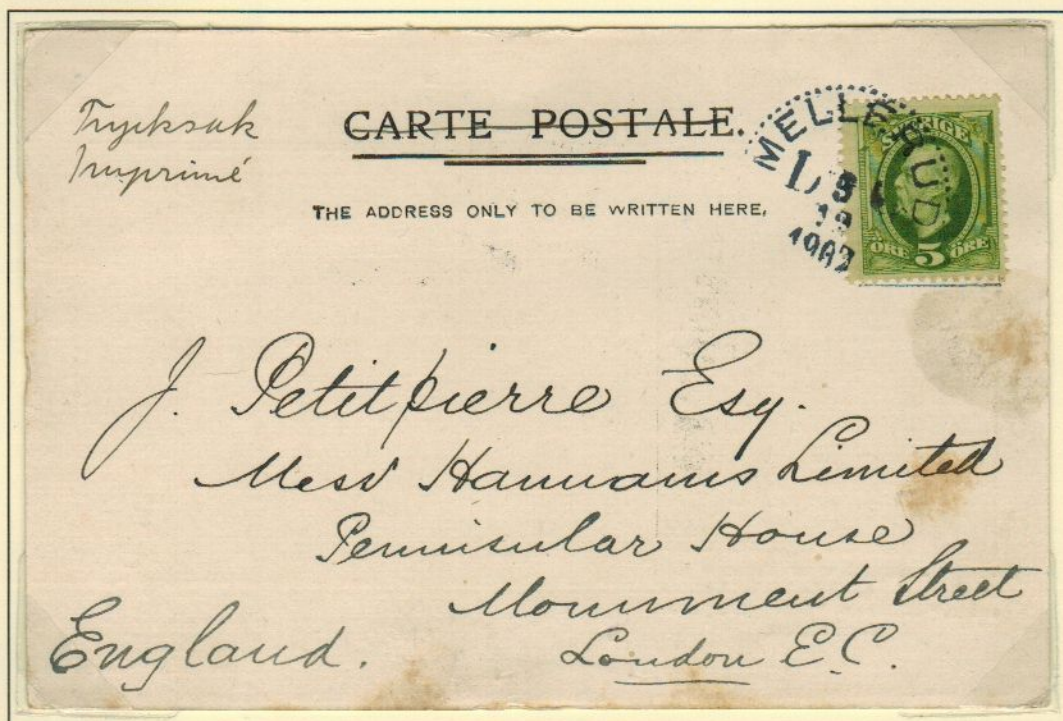 Trycksak
Imprimé
CARTE POSTALE.
THE ADDRESS ONLY TO BE WRITTEN HERE,
MELLERUD
SVERIGE
1902
ÖRE 5 ÖRE
J. Petitpierre Esq.
Mess Hannams Limited
Peninsular House
Monument Street
London E.C.
England.